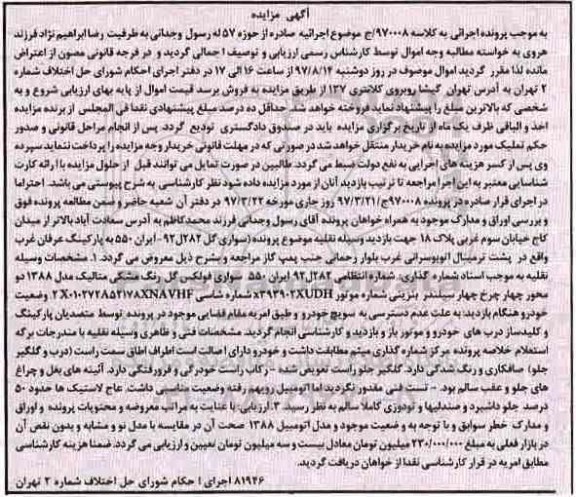 آگهی مزایده
به موجب پرونده اجرائی به کلاسه ۹۷۰۰۰۸/ج موضوع اجرائیه صادره از حوزه ۵۷ له رسول وجدانی به ظرفیت رضا ابراهیم نژاد فرزند
هروی به خواسته مطالبه وجه اموال توسط کارشناس رسمی ارزیابی و توصیف اجمالی گردید و در فرجه قانونی مصون از اعتراض
مانده لذا مقرر گردید اموال موصوف در روز دوشنبه ۹۷/۸/۱۴ از ساعت ۱۶ الی ۱۷ در دفتر اجرای احکام شورای حل اختلاف شماره
۲ تهران به آدرس تهران گیشا روبروی کلانتری ۱۳۷ از طریق مزایده به فروش برسد قیمت اموال از پایه بهای ارزیابی شروع و به
شخصی که بالاترین مبلغ را پیشنهاد نماید فروخته خواهد شد. حداقل ده درصد مبلغ پیشنهادی نقدا فی المجلس از برنده مزایده
اخذ و الباقی ظرف یک ماه از تاریخ برگزاری مزایده باید در صندوق دادگستری تودیع گردد. پس از انجام مراحل قانونی و صدور
حکم تملیک مورد مزایده به نام خریدار منتقل خواهد شد در صورتی که در مهلت قانونی خریدار وجه مزایده را پرداخت ننماید سپرده
وی پس از کسر هزینه های اجرایی به نفع دولت ضبط می گردد. طالبین در صورت تمایل می توانند قبل از حلول مزایده با ارائه کارت
شناسایی معتبر به این اجرا مراجعه تا ترتیب بازدید آنان از مورد مزایده داده شود نظر کارشناسی به شرح پیوستی می باشد. احتراما
در اجرای قرار صادره در پرونده ۹۷۰۰۰۸/ج ۹۷/۳/۲۱ روز جاری مورخه ۹۷/۳/۲۲ در دفتر آن شعبه حاضر و ضمن مطالعه پرونده فوق
و بررسی اوراق و مدارک موجود به همراه خواهان پرونده آقای رسول وجدانی فرزند محمدکاظم به آدرس سعادت آباد بالاتر از میدان
کاج خیابان سوم غربی پلاک ۱۸ جهت بازدید وسیله نقلیه موضوع پرونده (سواری گل ۲۸۲ل۹۲-ایران ۵۵۰ به پارکینگ عرفان غرب
واقع در پشت ترمینال اتوبوسرانی غرب بلوار رحمانی جنب پمپ گاز مراجعه و بشرح ذیل معروض می گردد. ۱. مشخصات وسیله
نقلیه به موجب اسناد شماره گذاری: شماره انتظامی ۲۸۲ل۹۲ ایران ۵۵۰ سواری فولکس گل رنگ مشکی متالیک مدل ۱۳۸۸ دو
محور چهار چرخ چهار سیلندر بنزینی شماره موتور XUDH شماره شاسی وضعیت
خودرو هنگام بازدید: به علت عدم دسترسی به سویچ خودرو و طبق امریه مقام قضایی موجود در پرونده توسط متصدیان پارکینگ
و کلیدساز درب های خودرو و موتور باز و بازدید و کارشناسی انجام گردید. مشخصات فنی و ظاهری وسیله نقلیه با مندرجات برگه
استعلام خلاصه پرونده مرکز شماره گذاری میثم مطابقت داشت و خودرو دارای اصالت است اطراف اطاق سمت راست (درب و گلگیر
جلو) صافکاری و رنگ شدگی دارد. گلگیر جلو راست تعویض شده - رکاب راست خودرگی و فرورفتگی دارد. آئینه های بغل و چراغ
های جلو و عقب سالم بود. - تست فنی مقدور نگردید اما اتومبیل رویهم رفته وضعیت مناسبی داشت. عاج لاستیک ها حدود ۵۰
درصد جلو داشبرد و صندلیها و تودوزی کاملا سالم به نظر رسید. ۳. ارزیابی: با عنایت به مراتب معروضه و محتویات پرونده و اوراق
و مدارک خطر سوابق و با توجه به وضعیت موجود و مدل اتومبیل ۱۳۸۸ صحت آن در مقایسه با مدل نو و مشابه و بدون نقص آن
در بازار فعلی به مبلغ ۲۳۰/۰۰۰/۰۰۰ میلیون تومان معادل بیست و سه میلیون تومان تعیین و ارزیابی می گردد. ضمنا هزینه کارشناسی
مطابق امریه در قرار کارشناسی نقدا از خواهان دریافت گردید.
۸۱۹۴۶ اجرای احکام شورای حل اختلاف شماره ۲ تهران